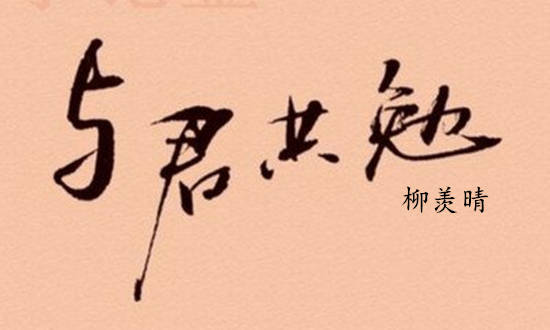 与君共勉
柳羡晴